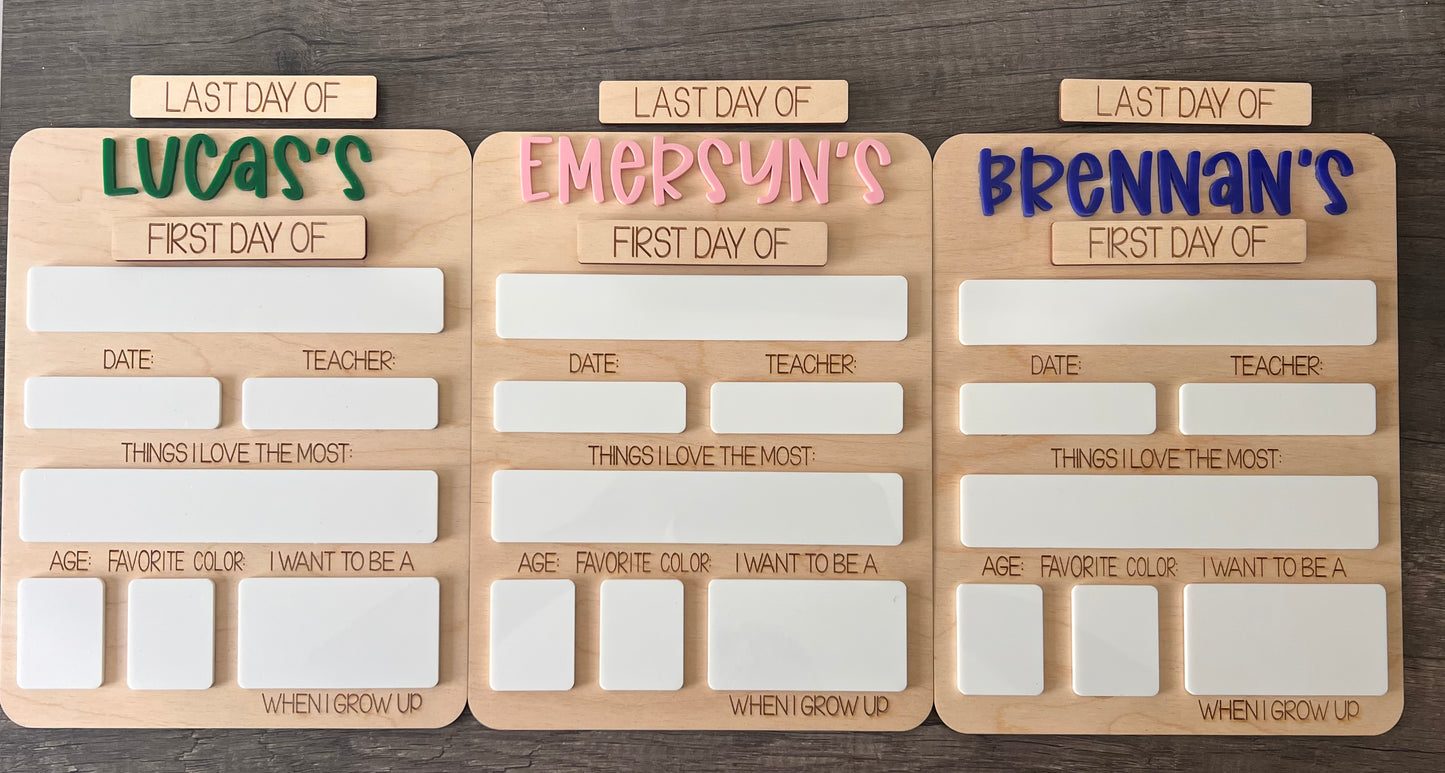 LAST DAY OF
LUCAS'S
FIRST DAY OF
DATE: TEACHER:
THINGS I LOVE THE MOST:
AGE: FAVORITE COLOR: I WANT TO BE A
WHEN I GROW UP
LAST DAY OF
EMERSYN'S
FIRST DAY OF
DATE: TEACHER:
THINGS I LOVE THE MOST:
AGE: FAVORITE COLOR: I WANT TO BE A
WHEN I GROW UP
LAST DAY OF
BRENNAN'S
FIRST DAY OF
DATE: TEACHER:
THINGS I LOVE THE MOST:
AGE: FAVORITE COLOR: I WANT TO BE A
WHEN I GROW UP